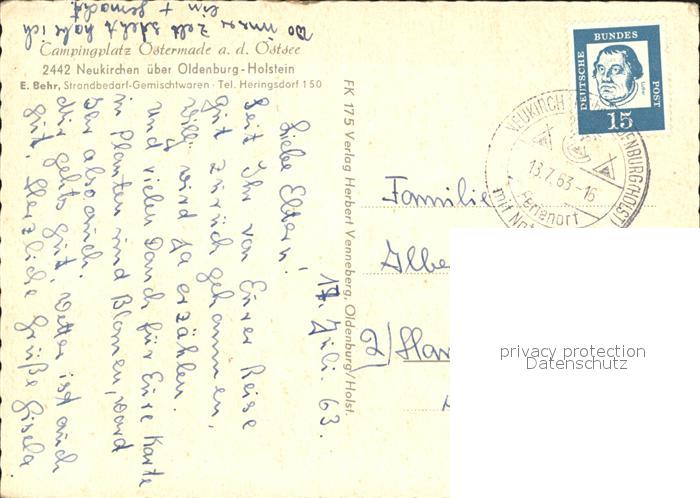 Wo unser Zelt steht habe ich
ein + gemacht.
Campingplatz Ostermade a. d. Ostsee
2442 Neukirchen über Oldenburg-Holstein
E. Behr, Strandbedarf-Gemischtwaren · Tel. Heringsdorf 150
FK 175 Verlag Herbert Venneberg, Oldenburg/Holst.
DEUTSCHE BUNDES POST
Luther
15
NEUKIRCH OLDENBURG (HOLST)
13.7.63-16
Ferienort
mit
17. Juli. 63.
Liebe Eltern!
Seit Ihr von Eurer Reise
gut zurück gekommen,
Willi wird ja erzählen.
und vielen Dank für Eure Karte
in Planten und Blomen, ward
Ihr also auch.
Mir gehts gut, Wetter ist auch
gut. Herzliche Grüße Gisela
Familie
Albe
2/Ham
privacy protection
Datenschutz